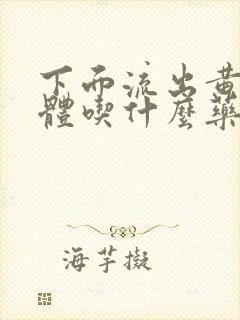 下面流出黄
體喫什麼藥
海芋擬